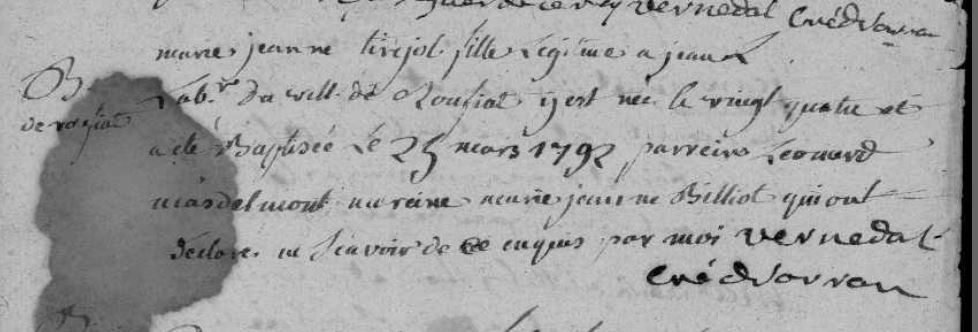 vernedal Curé d'orran
marie jeanne tirejol fille Légitime a jean
B.
Lab.r Du vill. de Roufiat y est née le vingt quatre et
de rofiat
a été Baptisée Le 25 mars 1792 parrein Leonard
masdelmont mareine marie jeanne Billiot qui ont
déclaré ne sçavoir de ce enquis par moi vernedal
Curé d'orran